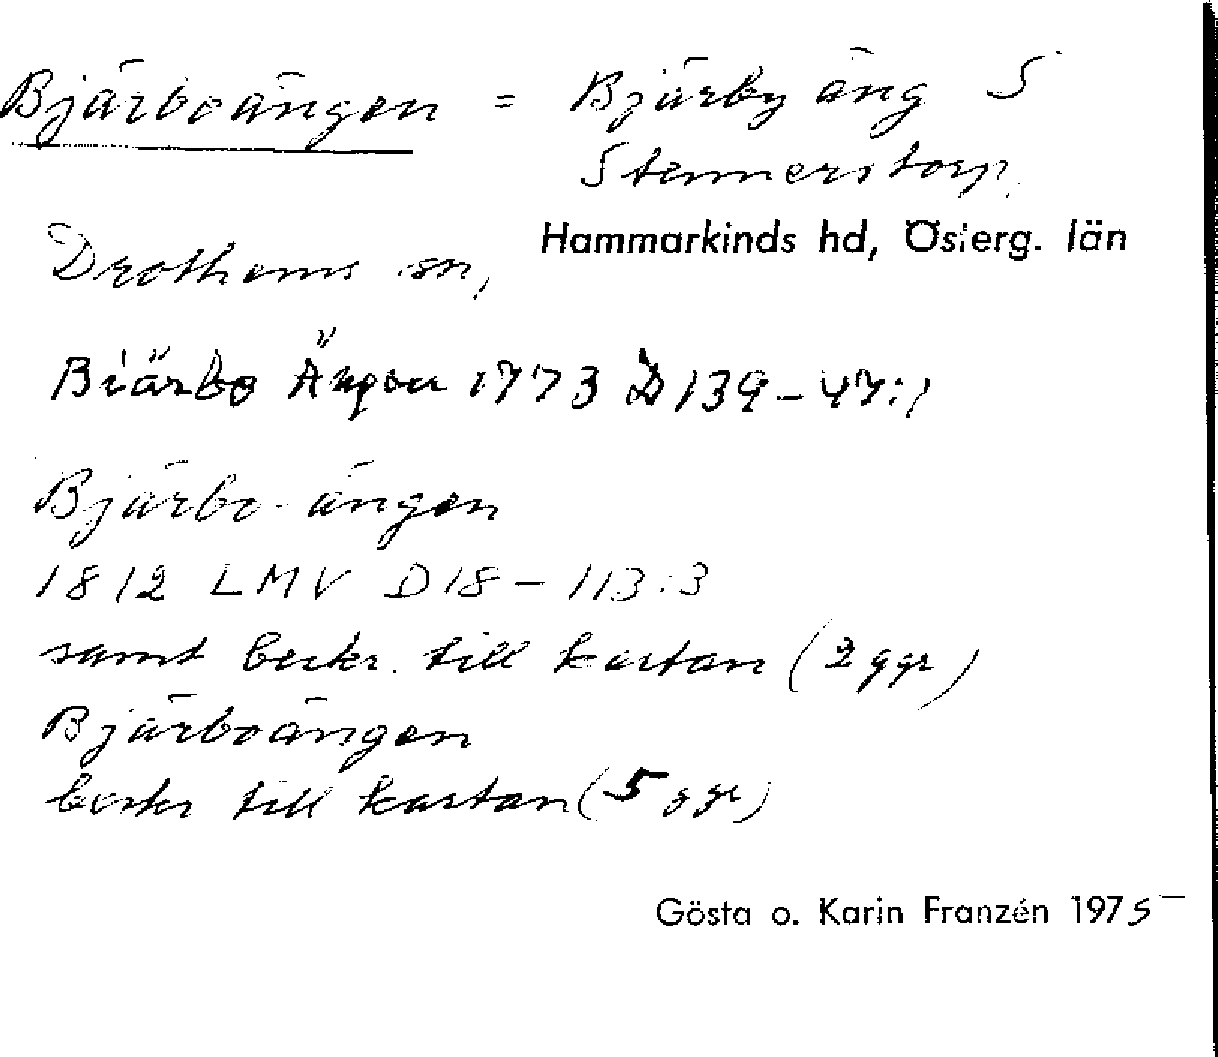 Bjärboängen = Bjärby äng S
Stennerstorp.
Drothems sn, Hammarkinds hd, Österg. län
Biärbo Ängen 1773 D 139-47:1
Bjärbo-ängen
1812 LMV D18-113:3
samt beskr. till kartan (2 ggr)
Bjärboängen
beskr till kartan (5 ggr)
Gösta o. Karin Franzén 1975